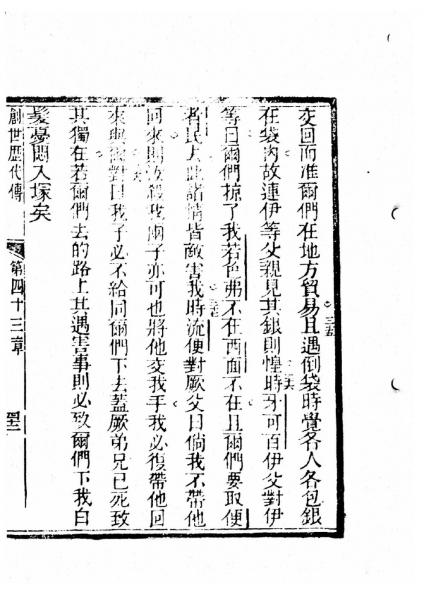 交回而准爾們在地方貿易且遇倒袋時覺各人各包銀
三五
在袋內故連伊等父親見其銀則惶時牙可百伊父對伊
三六
等曰爾們掠了我若色弗不在西面不在且爾們要取便
者民大此諸情皆敵害我時流便對厥父曰倘我不帶他
三七
回來則汝殺我兩子亦可也將他交我手我必復帶他回
來與爾對曰我子必不給同爾們下去蓋厥弟兄已死致
其獨在若爾們去的路上其遇害事則必致爾們下我白
髮憂悶入塚矣
創世歷代傳 第四十三章